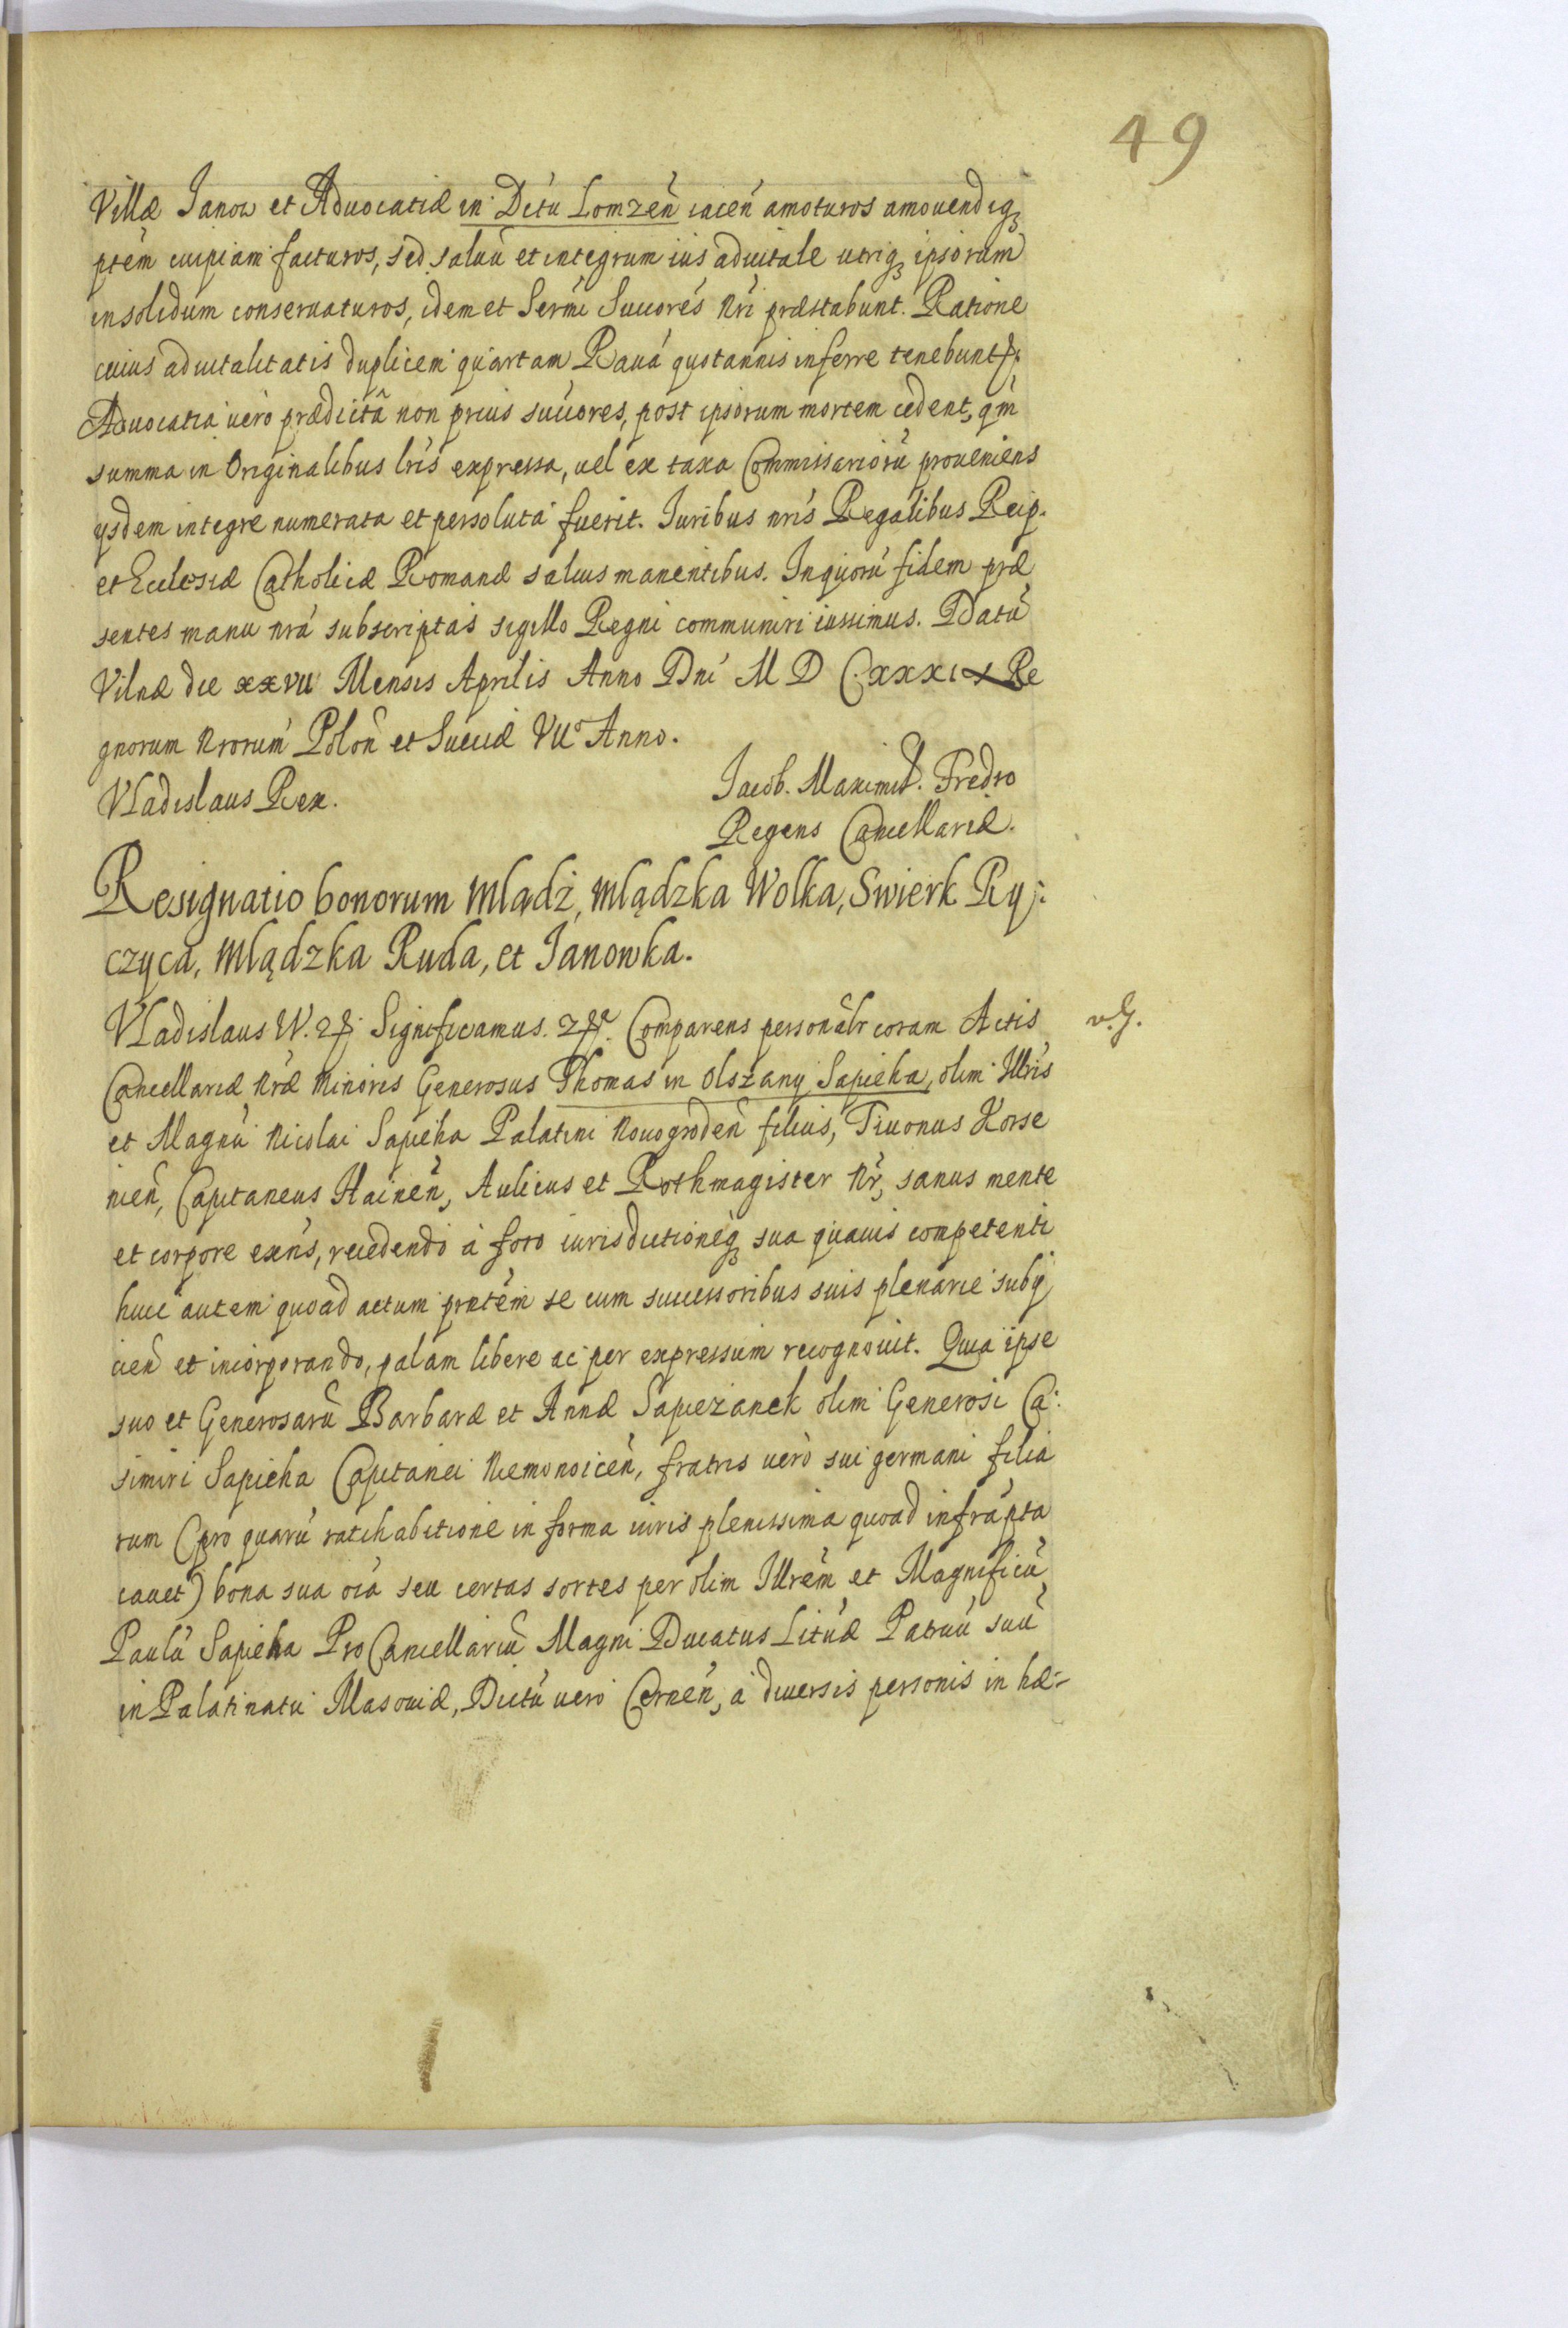 49
Villæ Janow et Aduocatiæ in Dctu Lomzeñ iaceñ amoturos amouendiq₃
ptem cuipiam facturos, sed saluũ et integrum ius aduitale utriq₃ ipsorum
in solidum conseruaturos, idem et Sermi Succores Nri præstabunt. Ratione
cuius aduitalitatis duplicem quartam Rauã quotannis inferre tenebuntr.
Aduocatia uero prædicta non prius succores, post ipsorum mortem cedent, qm
summa in Originalibus lris expressa, uel ex taxa Commissarioru proueniens
ysdem integre numerata et persoluta fuerit. Iuribus nris Regalibus Reip.
et Ecclesiæ Catholicæ Romanæ saluis manentibus. In quorũ fidem præ
sentes manu nrã subscriptas sigillo Regni communiri iussimus. Datũ
Vilnæ die xxvii Mensis Aprilis Anno Dni M D C xxxix Re
gnorum Nrorum Poloñ et Sueciæ VIIº Anno.
Vladislaus Rex.
Jacob. Maximil. Fredro
Regens Cancellariæ.
Resignatio bonorum Mlądz, Mlądzka Wolka, Swierk Ry:
czyca, Mlądzka Ruda, et Janowka.
Vladislaus IV. etc. Significamus. etc. Comparens personalr coram Actis
v. G.
Cancellariæ Nræ Minoris Generosus Thomas in Olszany Sapieha, olim Illris
et Magnci Nicolai Sapieha Palatini Nouogrodeñ filius, Tiuonus Korse
nieñ, Capitaneus Haineñ, Aulicus et Rothmagister Nr, sanus mente
et corpore exns, recedendo à foro iurisdictioneq₃ sua quauis competenti
huic autem quoad actum pntem se cum successoribus suis plenarie suby
cieñ et incorporando, palam libere ac per expressum recognouit. Quia ipse
suo et Generosarũ Barbaræ et Annæ Sapiezanek olim Generosi Ca:
simiri Sapieha Capitanei Niemonoiceñ, fratris uerò sui germani filia
rum (pro quarũ ratihabitione in forma iuris plenissima quoad infrapta
cauet) bona sua oia seu certas sortes per olim Illrem et Magnificũ
Paulũ Sapieha ProCancellariũ Magni Ducatus Lituæ Patruũ suũ
in Palatinatu Masouiæ, Dictu uero Cerneñ, à diuersis personis in hæ-